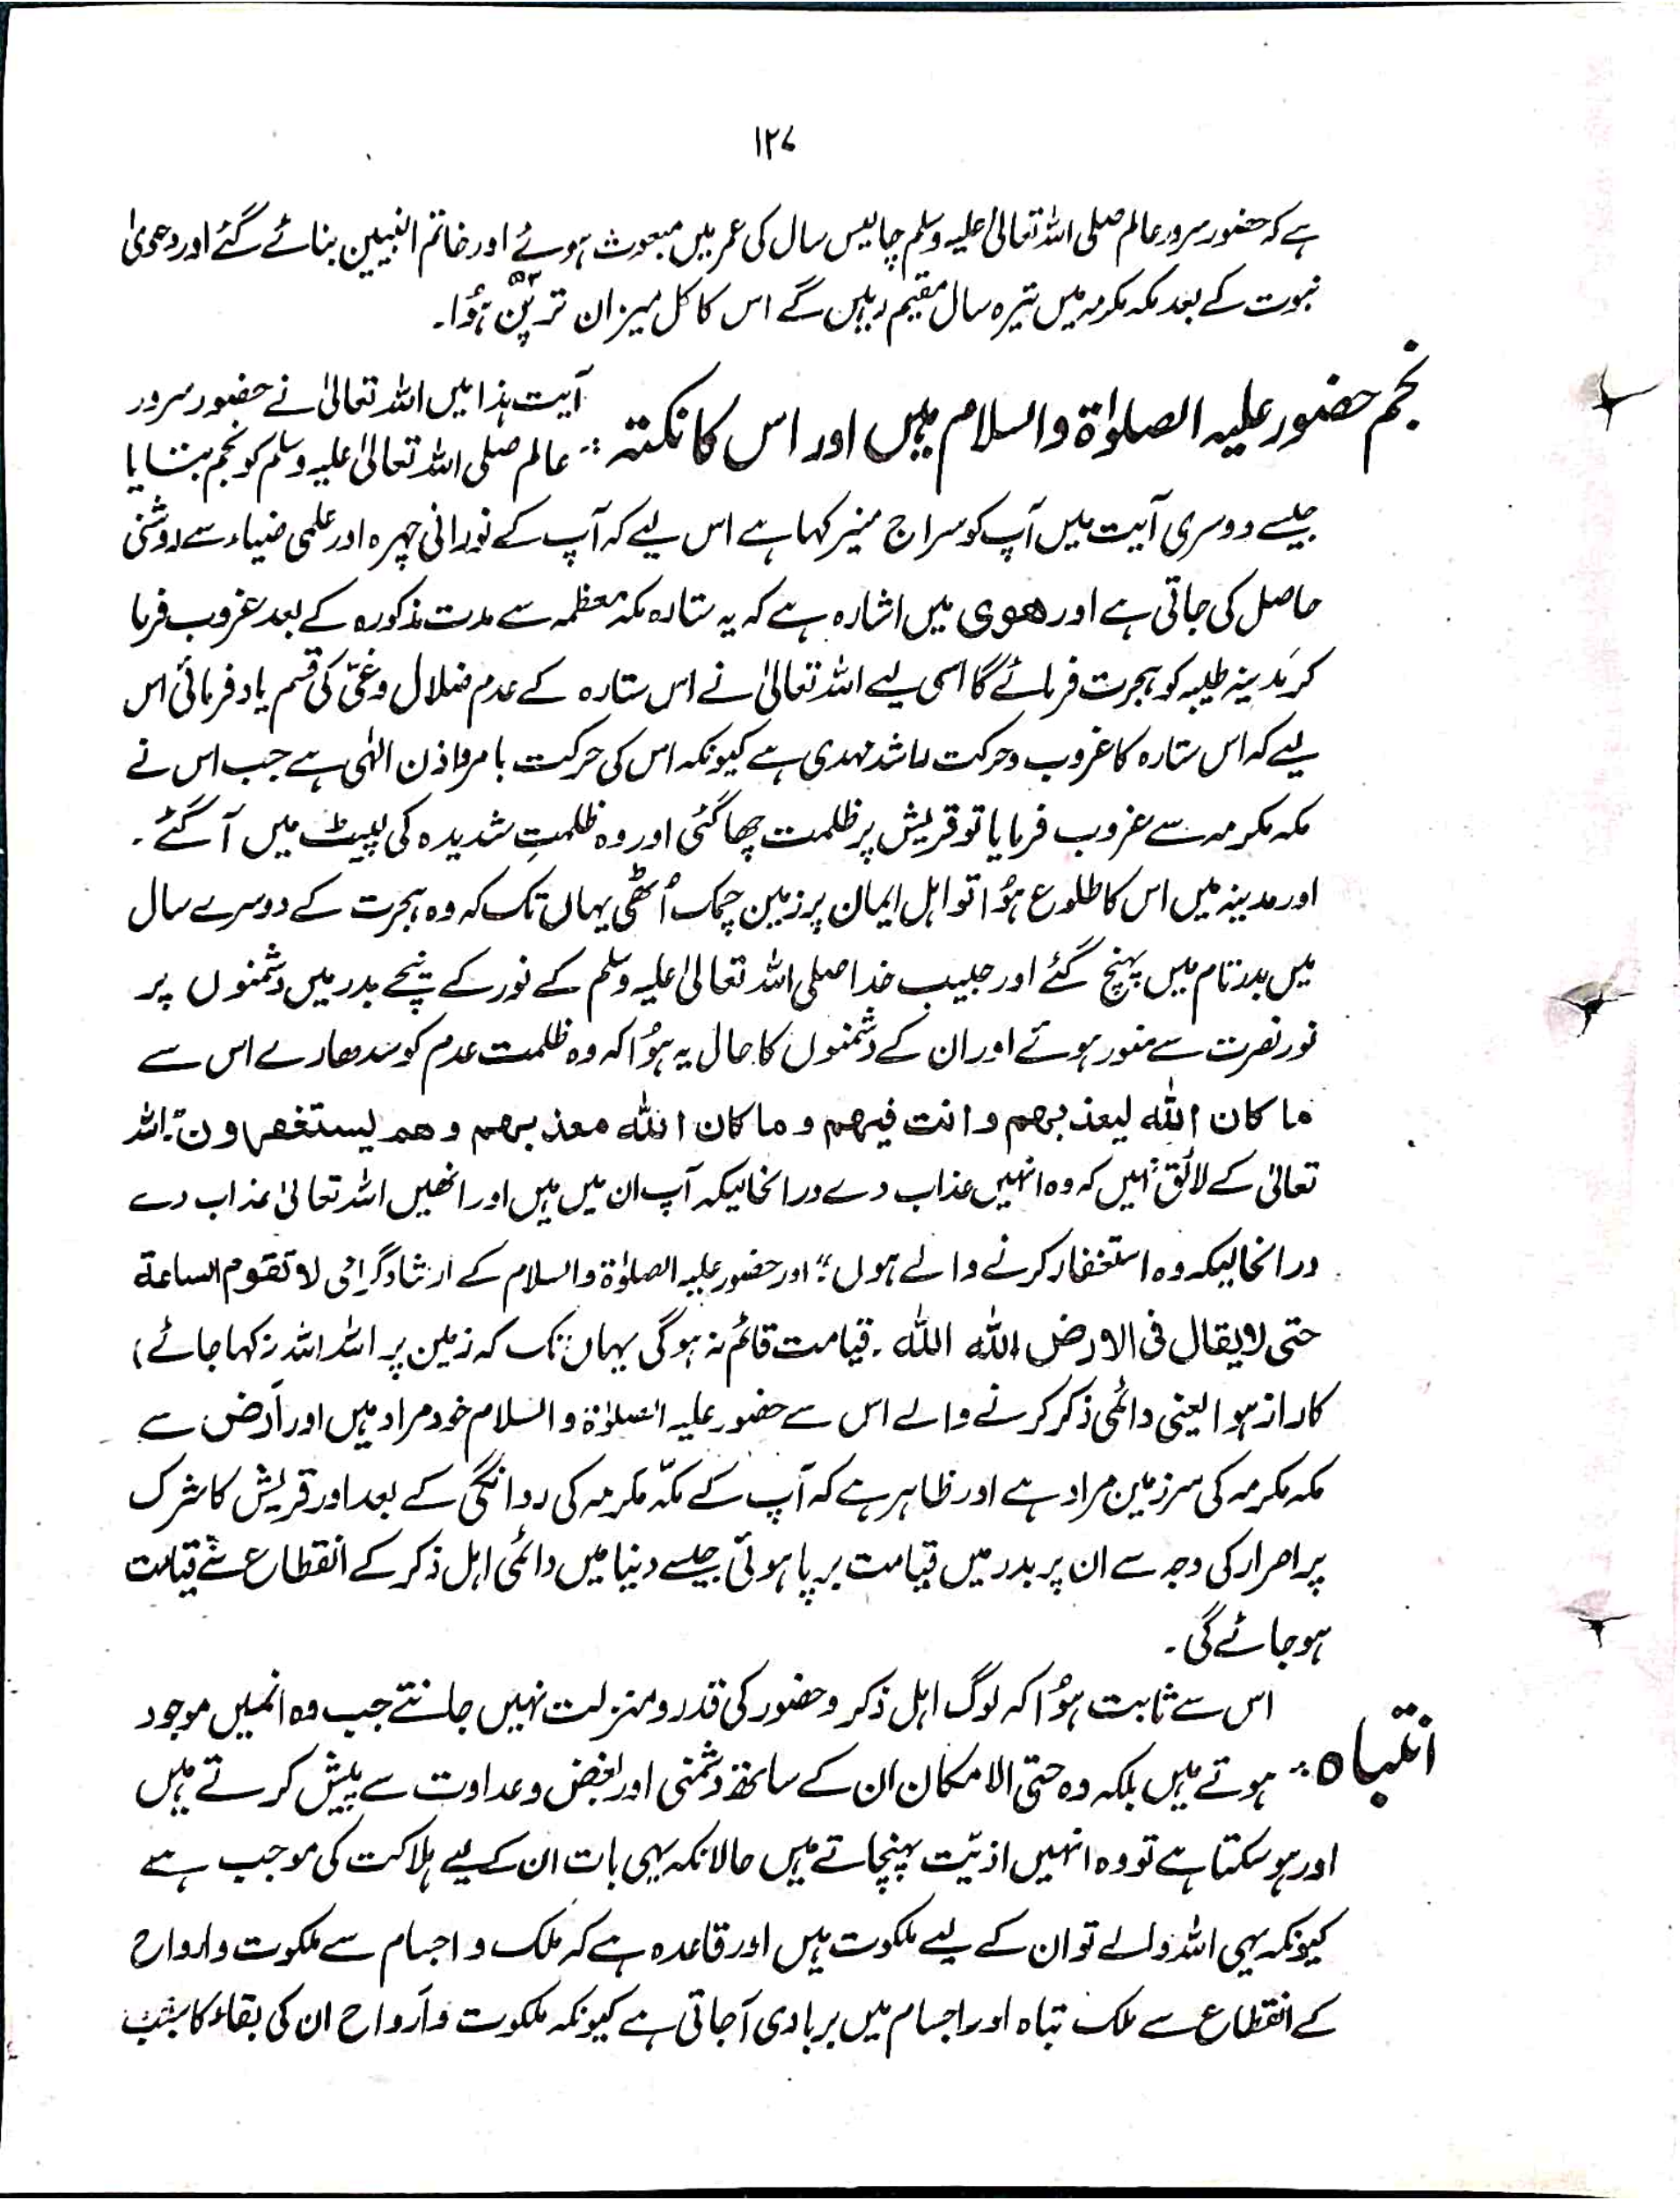 ۱۲۷
ہے کہ حضور سرور عالم صلی اللہ تعالیٰ علیہ وسلم چالیس سال کی عمر میں مبعوث ہوئے اور خاتم النبیین بنائے گئے اور دعویٰ
نبوت کے بعد مکہ مکرمہ میں تیرہ سال مقیم رہیں گے اس کا کل میزان ترپن ۵۳ ہؤا۔
نجم حضور علیہ الصلوٰۃ والسلام ہیں اور اس کا نکتہ :- آیت ہذا میں اللہ تعالیٰ نے حضور سرور
عالم صلی اللہ تعالیٰ علیہ وسلم کو نجم بتایا
جیسے دوسری آیت میں آپ کو سراج منیر کہا ہے اس لیے کہ آپ کے نورانی چہرہ اور علمی ضیاء سے روشنی
حاصل کی جاتی ہے اور ھوی میں اشارہ ہے کہ یہ ستارہ مکہ معظمہ سے مدت مذکورہ کے بعد غروب فرما
کر مدینہ طیبہ کو ہجرت فرمائے گا اسی لیے اللہ تعالیٰ نے اس ستارہ کے عدم ضلال و غیّ کی قسم یاد فرمائی اس
لیے کہ اس ستارہ کا غروب و حرکت راشد مہدی ہے کیونکہ اس کی حرکت بامر و اذن الٰہی ہے جب اس نے
مکہ مکرمہ سے غروب فرمایا تو قریش پر ظلمت چھا گئی اور وہ ظلمتِ شدیدہ کی لپیٹ میں آ گئے۔
اور مدینہ میں اس کا طلوع ہؤا تو اہل ایمان پر زمین چمک اُٹھی یہاں تک کہ وہ ہجرت کے دوسرے سال
میں بدر تام میں پہنچ گئے اور حبیب خدا صلی اللہ تعالیٰ علیہ وسلم کے نور کے نیچے بدر میں دشمنوں پر
نور نصرت سے منور ہوئے اور ان کے دشمنوں کا حال یہ ہؤا کہ وہ ظلمت عدم کو سدھارے اس سے
ما کان اللہ لیعذبہم و انت فیہم و ما کان اللہ معذبہم و ھم یستغفرون:۔ اللہ
تعالیٰ کے لائق نہیں کہ وہ انہیں عذاب دے درانحالیکہ آپ ان میں ہیں اور انھیں اللہ تعالیٰ عذاب دے
درانحالیکہ وہ استغفار کرنے والے ہوں"؛ اور حضور علیہ الصلوٰۃ والسلام کے ارشاد گرامی لا تقوم الساعۃ
حتی لا یقال فی الارض اللہ اللہ ۔ قیامت قائم نہ ہوگی یہاں تک کہ زمین پر اللہ اللہ نہ کہا جائے)
کا راز ہو ا یعنی دائمی ذکر کرنے والے اس سے حضور علیہ الصلوٰۃ والسلام خود مراد ہیں اور اَرض سے
مکہ مکرمہ کی سرزمین مراد ہے اور ظاہر ہے کہ آپ کے مکّہ مکرمہ کی روانگی کے بعد اور قریش کا شرک
پر اصرار کی وجہ سے ان پر بدر میں قیامت برپا ہوئی جیسے دنیا میں دائمی اہل ذکر کے انقطاع سے قیامت
ہو جائے گی۔
اس سے ثابت ہؤا کہ لوگ اہل ذکر و حضور کی قدر و منزلت نہیں جانتے جب وہ انہیں موجود
انتباہ :- ہوتے ہیں بلکہ وہ حتی الامکان ان کے ساتھ دشمنی اور بغض و عداوت سے پیش کرتے ہیں
اور ہو سکتا ہے تو وہ انہیں اذیّت پہنچاتے ہیں حالانکہ یہی بات ان کے لیے ہلاکت کی موجب ہے
کیونکہ یہی اللہ والے تو ان کے لیے ملکوت ہیں اور قاعدہ ہے کہ ملک و اجسام سے ملکوت و ارواح
کے انقطاع سے ملک تباہ اور اجسام میں بربادی آجاتی ہے کیونکہ ملکوت و اَرواح ان کی بقاء کا سبب